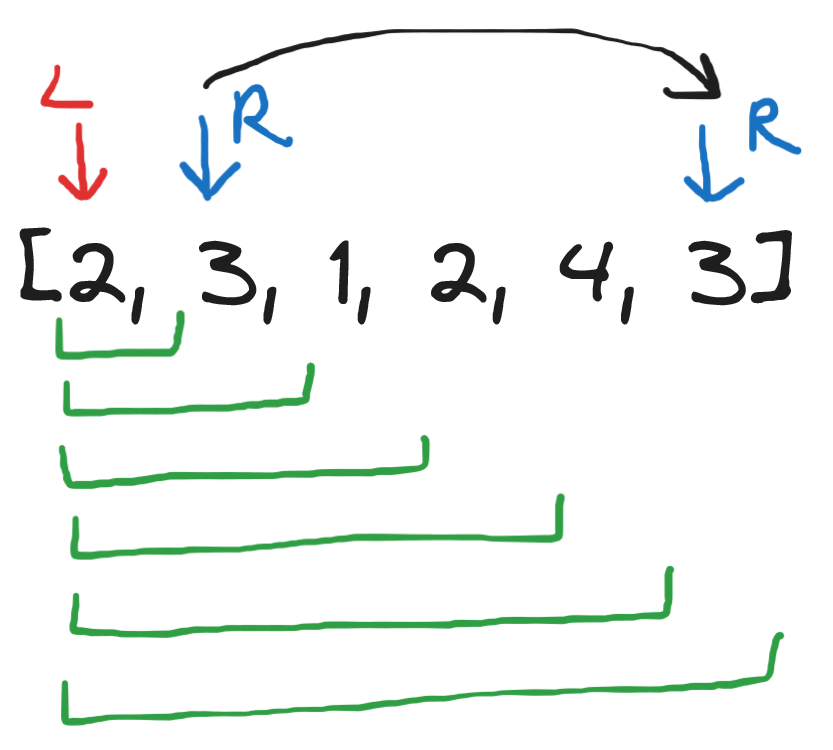 L R R
[2, 3, 1, 2, 4, 3]